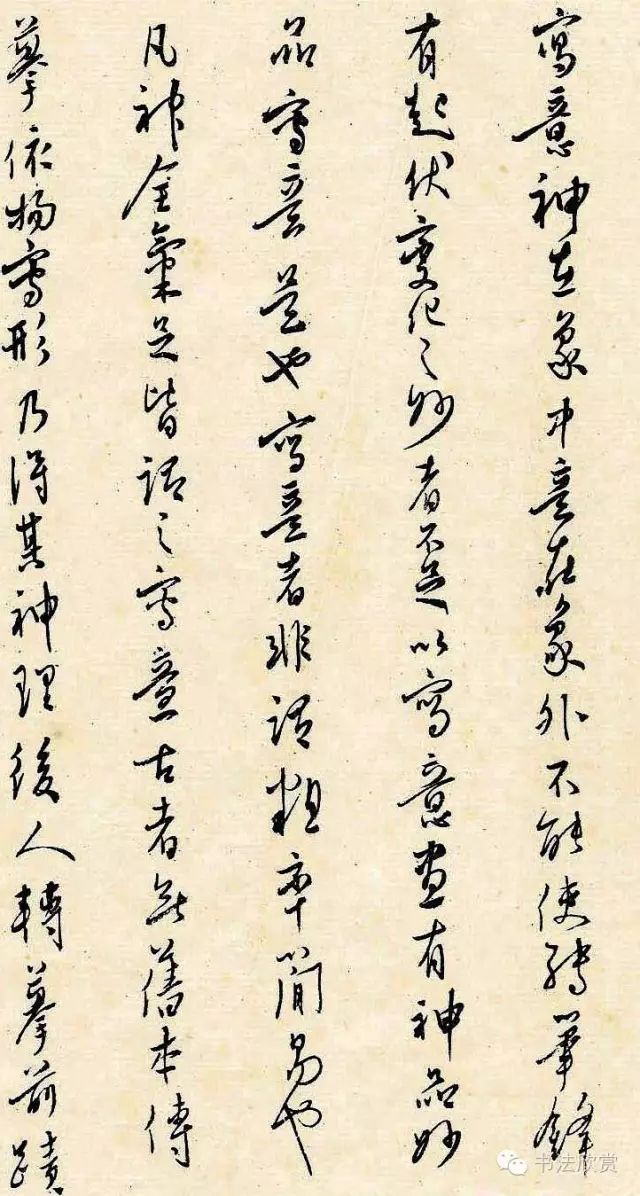 寫意神在象中意在象外不能使轉筆鋒
有起伏變化之妙者不足以寫意畫有神品妙
品寫意是也寫意者非謂粗率簡易也
凡神全氣足皆謂之寫意古者無舊本傳
摹依物寫形乃得其神理後人轉摹前蹟
书法欣赏